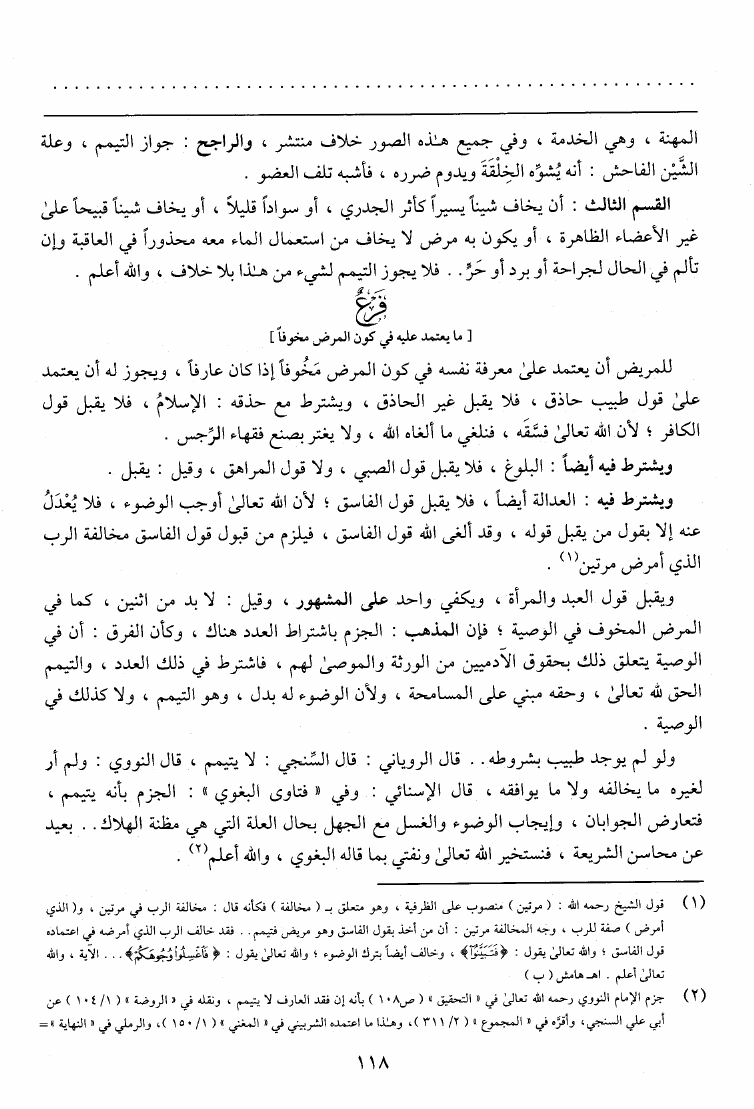 المهنة ، وهي الخدمة ، وفي جميع هـٰذه الصور خلاف منتشر ، والراجح : جواز التيمم ، وعلة
الشَّيْن الفاحش : أنه يُشوِّه الخِلْقَةَ ويدوم ضرره ، فأشبه تلف العضو .
القسم الثالث : أن يخاف شيناً يسيراً كأثر الجدري ، أو سواداً قليلاً ، أو يخاف شيناً قبيحاً علىٰ
غير الأعضاء الظاهرة ، أو يكون به مرض لا يخاف من استعمال الماء معه محذوراً في العاقبة وإن
تألم في الحال لجراحة أو برد أو حَرٍّ . . فلا يجوز التيمم لشيء من هـٰذا بلا خلاف ، والله أعلم .
فَرْعٌ
[ ما يعتمد عليه في كون المرض مخوفاً ]
للمريض أن يعتمد علىٰ معرفة نفسه في كون المرض مَخُوفاً إذا كان عارفاً ، ويجوز له أن يعتمد
علىٰ قول طبيب حاذق ، فلا يقبل غير الحاذق ، ويشترط مع حذقه : الإسلامُ ، فلا يقبل قول
الكافر ؛ لأن الله تعالىٰ فسَّقَه ، فنلغي ما ألغاه الله ، ولا يغتر بصنع فقهاء الرِّجس .
ويشترط فيه أيضاً : البلوغ ، فلا يقبل قول الصبي ، ولا قول المراهق ، وقيل : يقبل .
ويشترط فيه : العدالة أيضاً ، فلا يقبل قول الفاسق ؛ لأن الله تعالىٰ أوجب الوضوء ، فلا يُعْدَلُ
عنه إلا بقول من يقبل قوله ، وقد ألغى الله قول الفاسق ، فيلزم من قبول قول الفاسق مخالفة الرب
الذي أمرض مرتين(١) .
ويقبل قول العبد والمرأة ، ويكفي واحد على المشهور ، وقيل : لا بد من اثنين ، كما في
المرض المخوف في الوصية ؛ فإن المذهب : الجزم باشتراط العدد هناك ، وكأن الفرق : أن في
الوصية يتعلق ذلك بحقوق الآدميين من الورثة والموصىٰ لهم ، فاشترط في ذلك العدد ، والتيمم
الحق لله تعالىٰ ، وحقه مبني على المسامحة ، ولأن الوضوء له بدل ، وهو التيمم ، ولا كذلك في
الوصية .
ولو لم يوجد طبيب بشروطه . . قال الروياني : قال السِّنجي : لا يتيمم ، قال النووي : ولم أر
لغيره ما يخالفه ولا ما يوافقه ، قال الإسنائي : وفي « فتاوى البغوي » : الجزم بأنه يتيمم ،
فتعارض الجوابان ، وإيجاب الوضوء والغسل مع الجهل بحال العلة التي هي مظنة الهلاك . . بعيد
عن محاسن الشريعة ، فنستخير الله تعالىٰ ونفتي بما قاله البغوي ، والله أعلم(٢) .
(١) قول الشيخ رحمه الله : ( مرتين ) منصوب على الظرفية ، وهو متعلق بـ ( مخالفة ) فكأنه قال : مخالفة الرب في مرتين ، و( الذي
أمرض ) صفة للرب ، وجه المخالفة مرتين : أن من أخذ بقول الفاسق وهو مريض فتيمم . . فقد خالف الرب الذي أمرضه في اعتماده
قول الفاسق ؛ والله تعالىٰ يقول : ﴿ فَتَبَيَّنُوٓاْ ﴾ ، وخالف أيضاً بترك الوضوء ؛ والله تعالىٰ يقول : ﴿ فَٱغْسِلُواْ وُجُوهَكُمْ ﴾ . . . الآية ، والله
تعالىٰ أعلم . اهـ هامش ( ب )
(٢) جزم الإمام النووي رحمه الله تعالىٰ في « التحقيق » ( ص١٠٨ ) بأنه إن فقد العارف لا يتيمم ، ونقله في « الروضة » ( ١٠٤/١ ) عن
أبي علي السنجي، وأقرَّه في « المجموع » ( ٣١١/٢ )، وهـٰذا ما اعتمده الشربيني في « المغني » ( ١٥٠/١ )، والرملي في « النهاية » =
١١٨